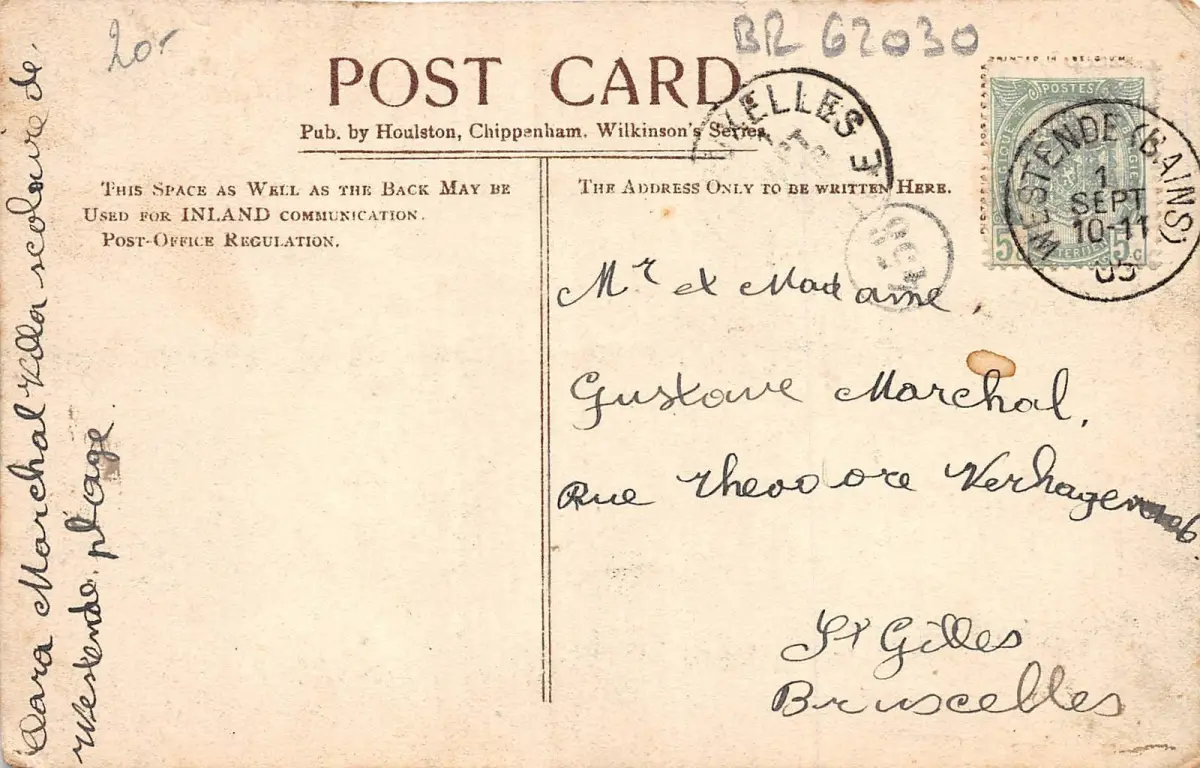 20-
BR 62030
POST CARD
Pub. by Houlston, Chippenham. Wilkinson's Series.
This Space as Well as the Back May be
Used for INLAND communication.
Post-Office Regulation.
The Address Only to be written Here.
PRINTED IN BELGIUM
POSTES
BELGIQUE BELGIE
5c 5c
WESTENDE (BAINS)
1
SEPT
10-11
05
IXELLES
Mr et Madame
Gustave Marchal,
Rue Theodore Verhagen
St Gilles
Bruxelles
Marchal Villa scolaire de
Westende. plage.